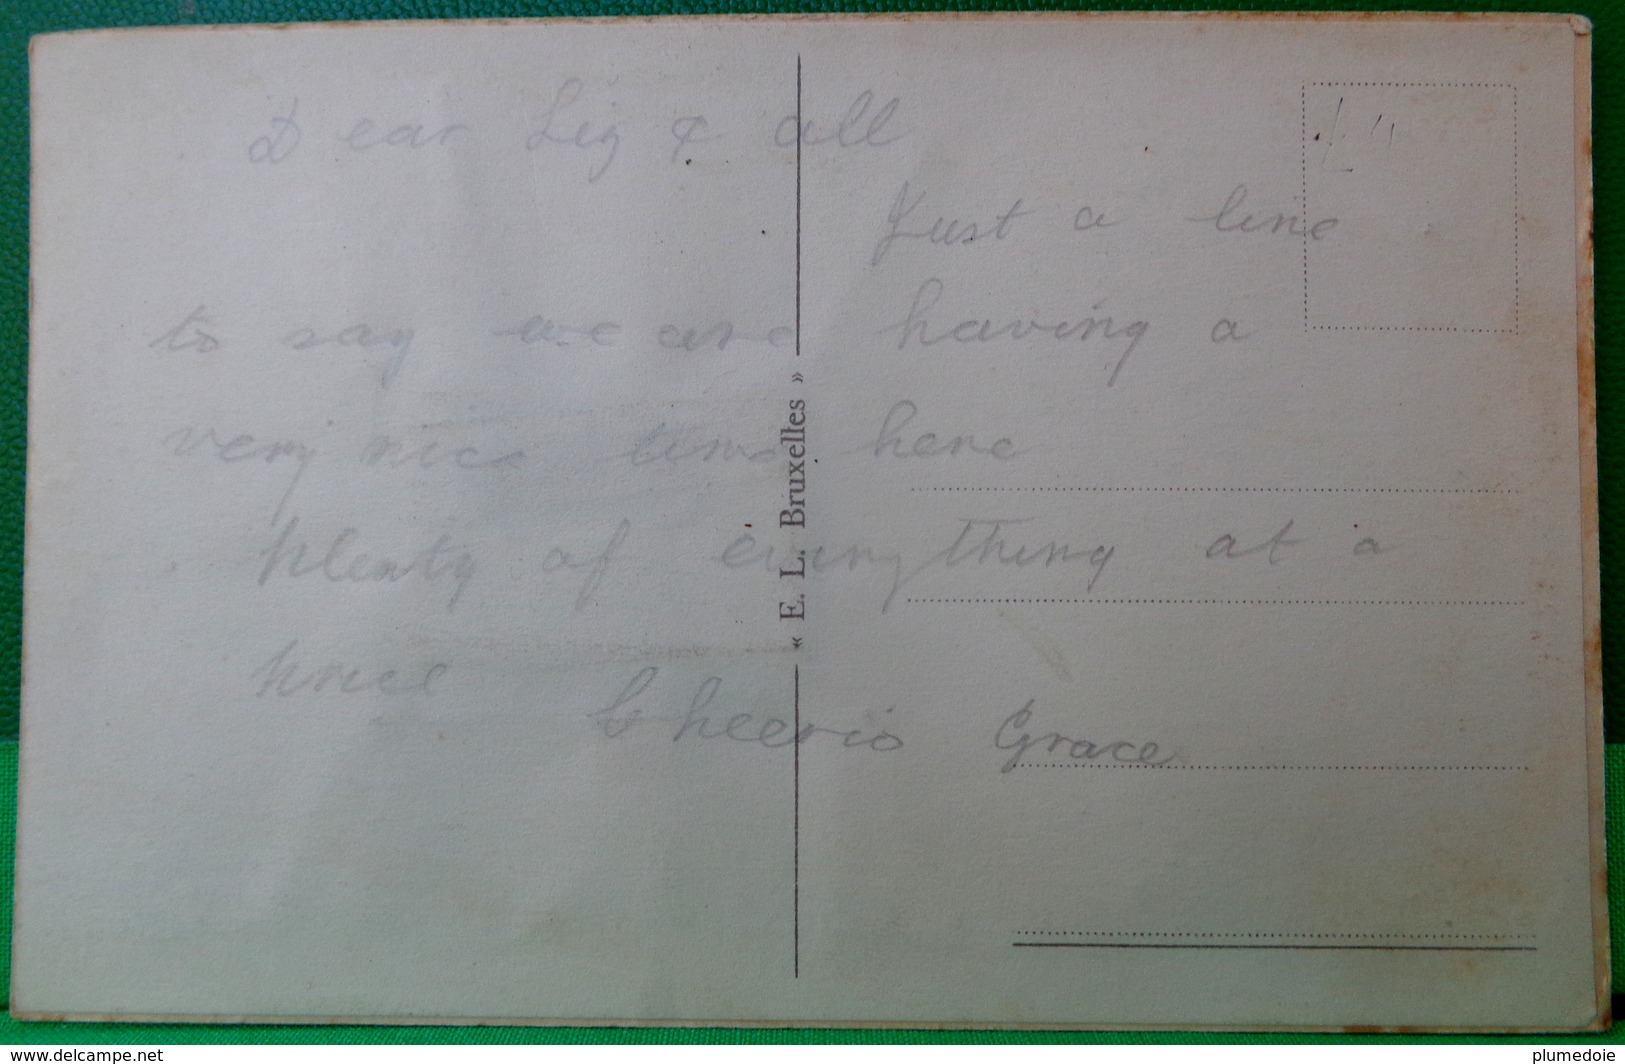 Dear Liz & all
Just a line
to say we are having a
very nice time here
plenty of everything at a
price
Cheerio Grace
« E. L. Bruxelles »
www.delcampe.net
plumedoie